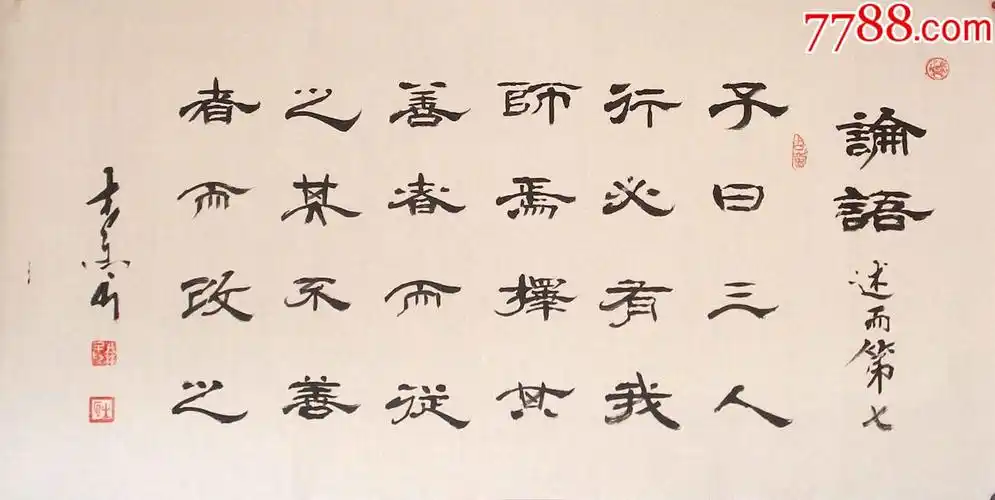 7788.com
論語述而第七
子曰三人
行必有我
師焉擇其
善者而從
之其不善
者而改之